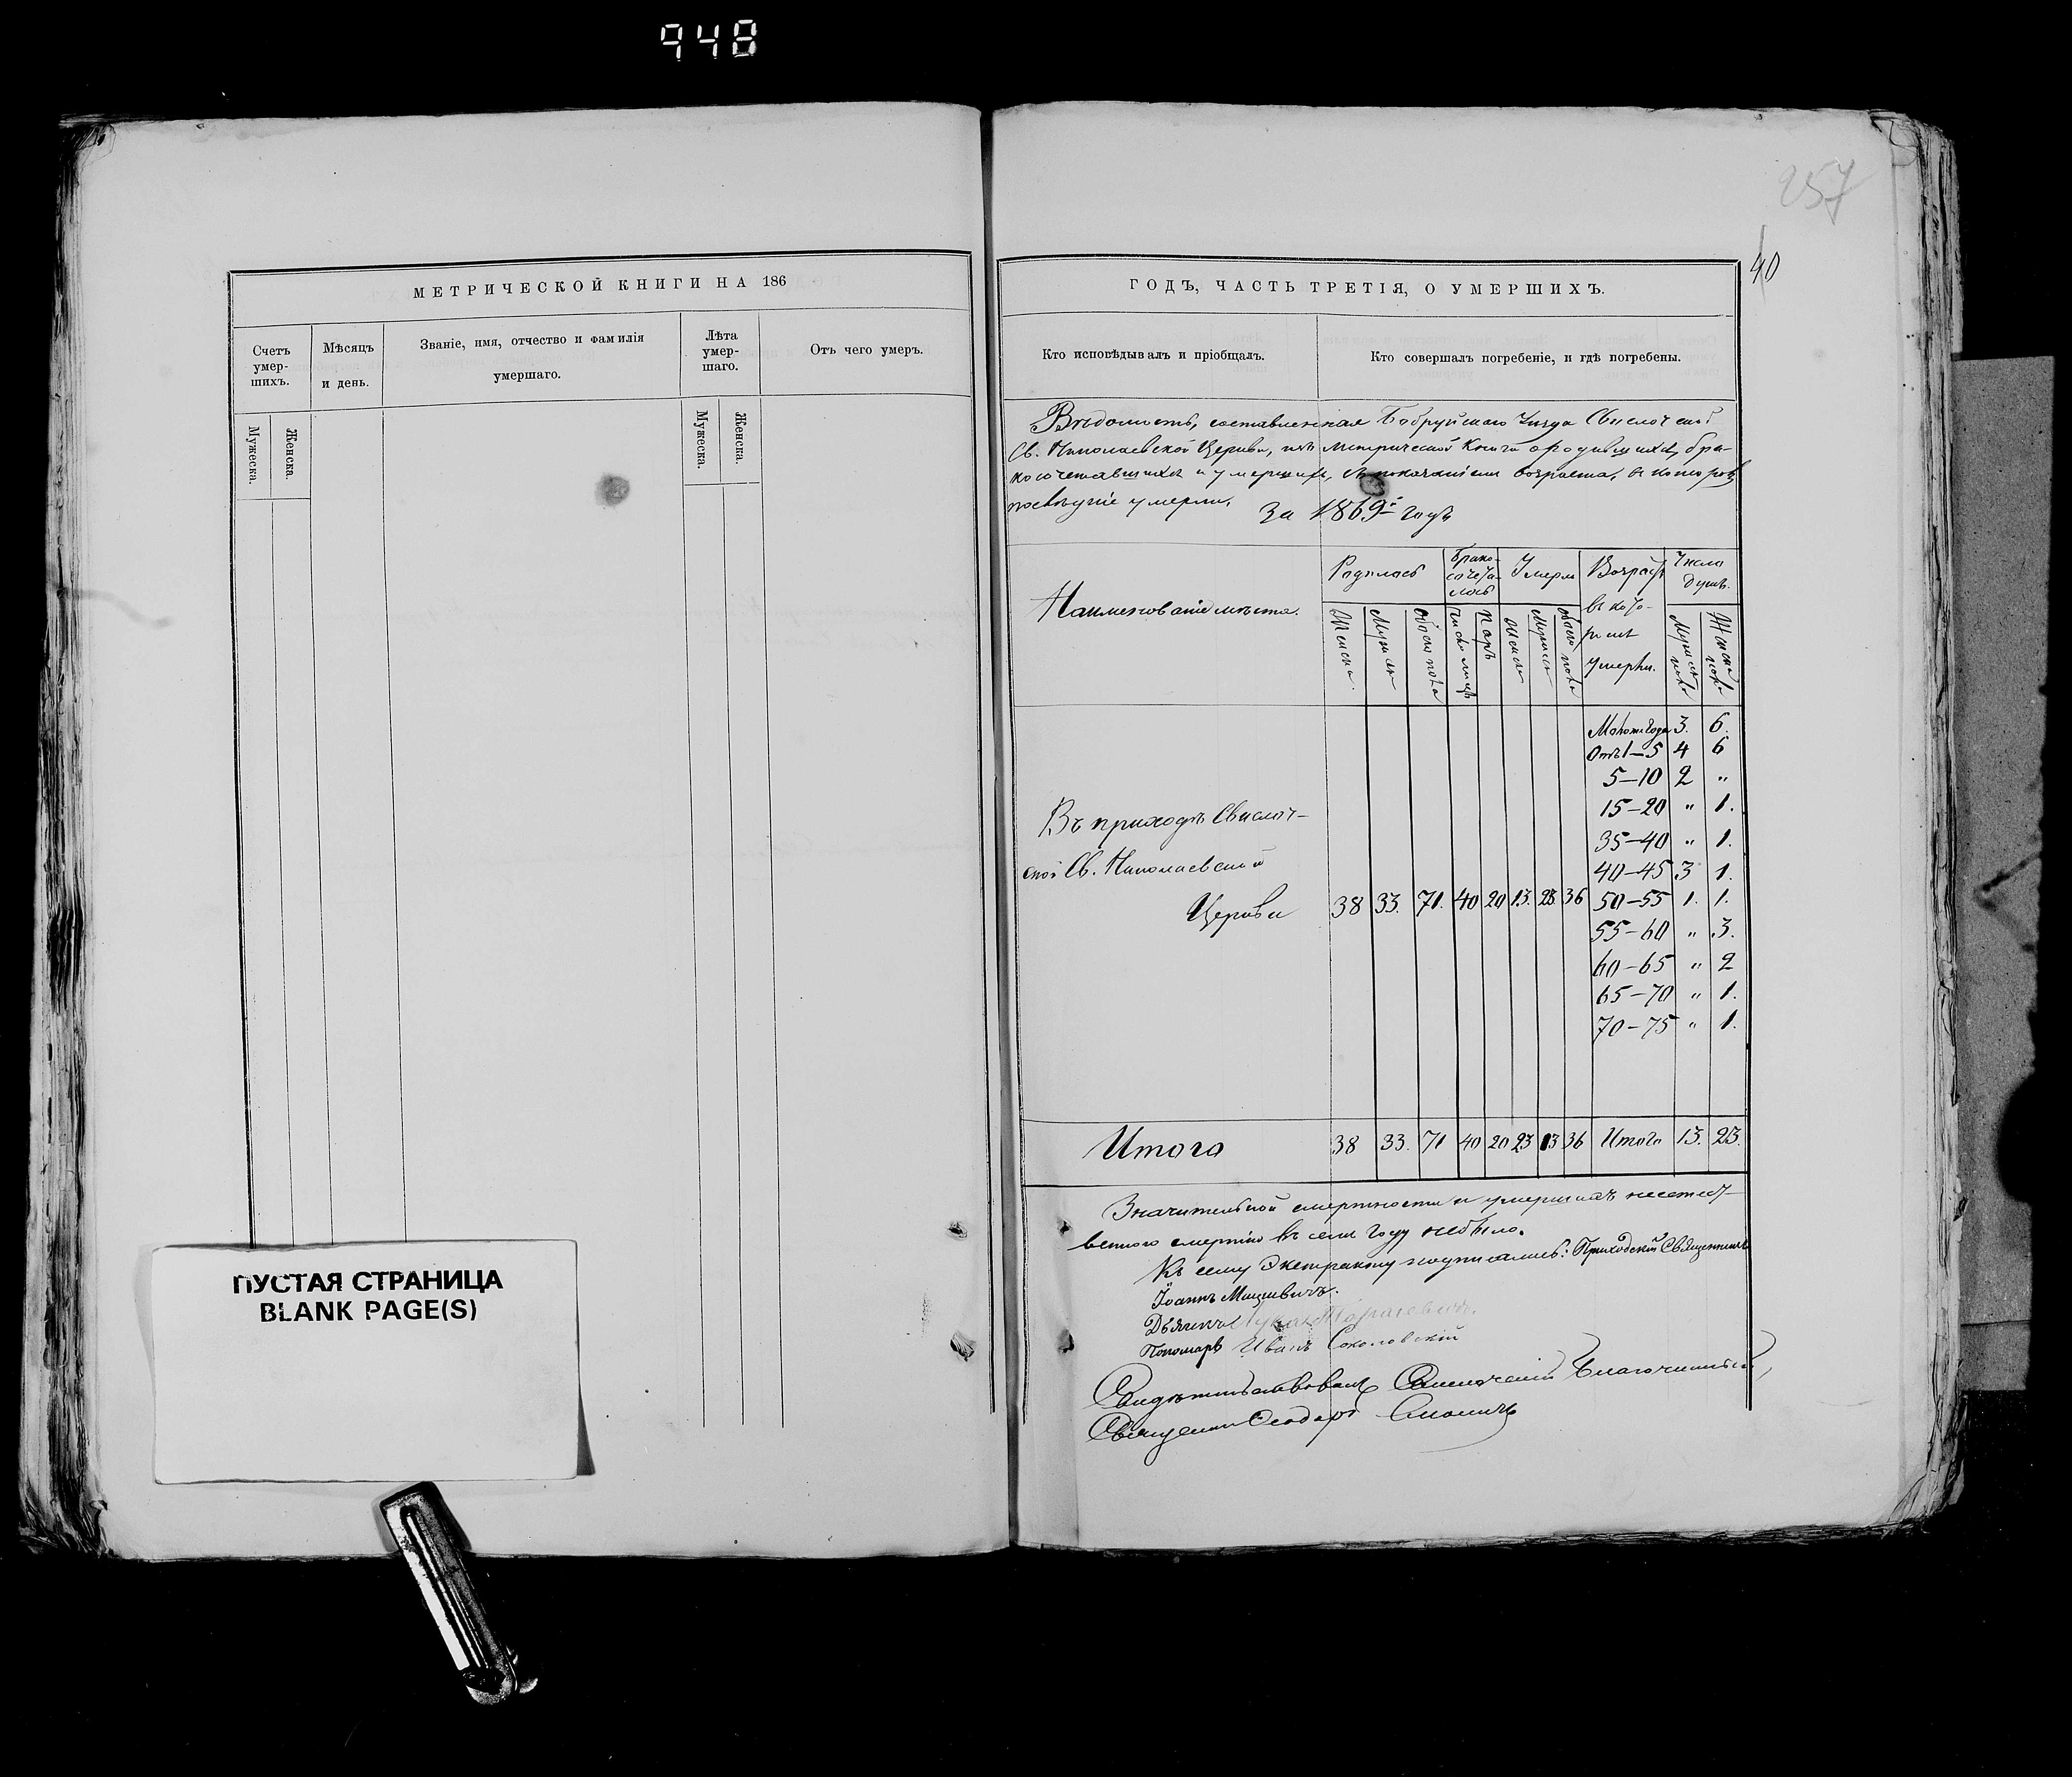 948
257
40
МЕТРИЧЕСКОЙ КНИГИ НА 186
Счетъ умер-шихъ.
Мѣсяцъ и день.
Званіе, имя, отчество и фамилія умершаго.
Лѣта умер-шаго.
Отъ чего умеръ.
Мужеска.
Женска.
Мужеска.
Женска.
ПУСТАЯ СТРАНИЦА
BLANK PAGE(S)
ГОДЪ, ЧАСТЬ ТРЕТІЯ, О УМЕРШИХЪ.
Кто исповѣдывалъ и пріобщалъ.
Кто совершалъ погребеніе, и гдѣ погребены.
Вѣдомость, составленная Бобруйскаго Уѣзда Свислочской
Св. Николаевской Церкви, изъ Метрической Книги о родившихся, бра-
косочетавшихся и умершихъ, съ показаніемъ возраста, въ которомъ
послѣдніе умерли.
За 1869й годъ
Наименованіе мѣста.
Родилось
Брако-сочета-лось
Умерло
Возрастъ въ ко-то-ромъ умерли.
Число душъ.
Женска.
Мужеск
Обоего пола
Число лицъ
Паръ
Женска
Мужеска
Обоего пола
Мужеска пола
Женска пола
Моложе года 3. 6.
Отъ 1—5 4 6
5—10 2 "
15—20 " 1.
35—40 " 1.
40—45 3 1.
Въ приходѣ Свислоч-
ской Св. Николаевской
Церкви 38 33. 71. 40 20 13. 23 36 50—55 1. 1.
55—60 " 3.
60—65 " 2
65—70 " 1.
70—75 " 1.
Итого 38 33. 71 40 20 23 13 36 Итого 13. 23.
Значительной смертности и умершихъ неестест-
венною смертію въ семъ году небыло.
Къ сему Экстракту подписались: Приходскій Священникъ
Іоаннъ Мацкевичъ.
Дьячекъ Лука Тарасевичъ.
Пономарь Иванъ Соколовскій
Свидѣтельствовалъ Свислочскій Благочинный,
Священникъ Ѳеодоръ